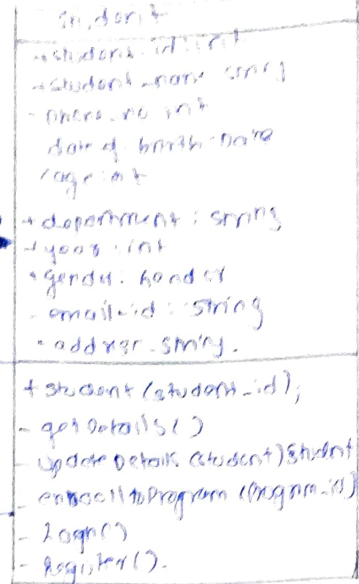 student
+student_id: int
+student_name string
- phone_no int
date of birth: Date
/age: int
+ department : string
+ year : int
+ gender: Gender
- email-id : string
- address-string.
+ student (student_id);
- getDetails()
- update Details (student) student
- enroll to Program (Program_id)
- Login()
- Register().